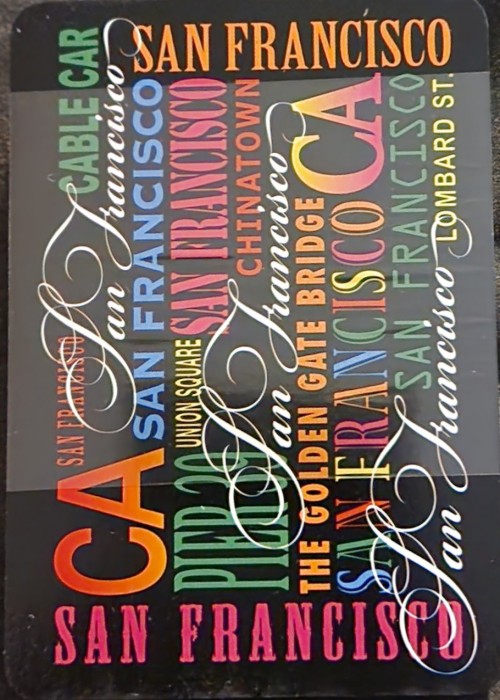 SAN FRANCISCO
CABLE CAR
San Francisco
SAN FRANCISCO
SAN FRANCISCO
SAN FRANCISCO
CHINATOWN
CA
SAN FRANCISCO
LOMBARD ST.
CA
UNION SQUARE
PIER 39
San Francisco
THE GOLDEN GATE BRIDGE
SAN FRANCISCO
San Francisco
SAN FRANCISCO